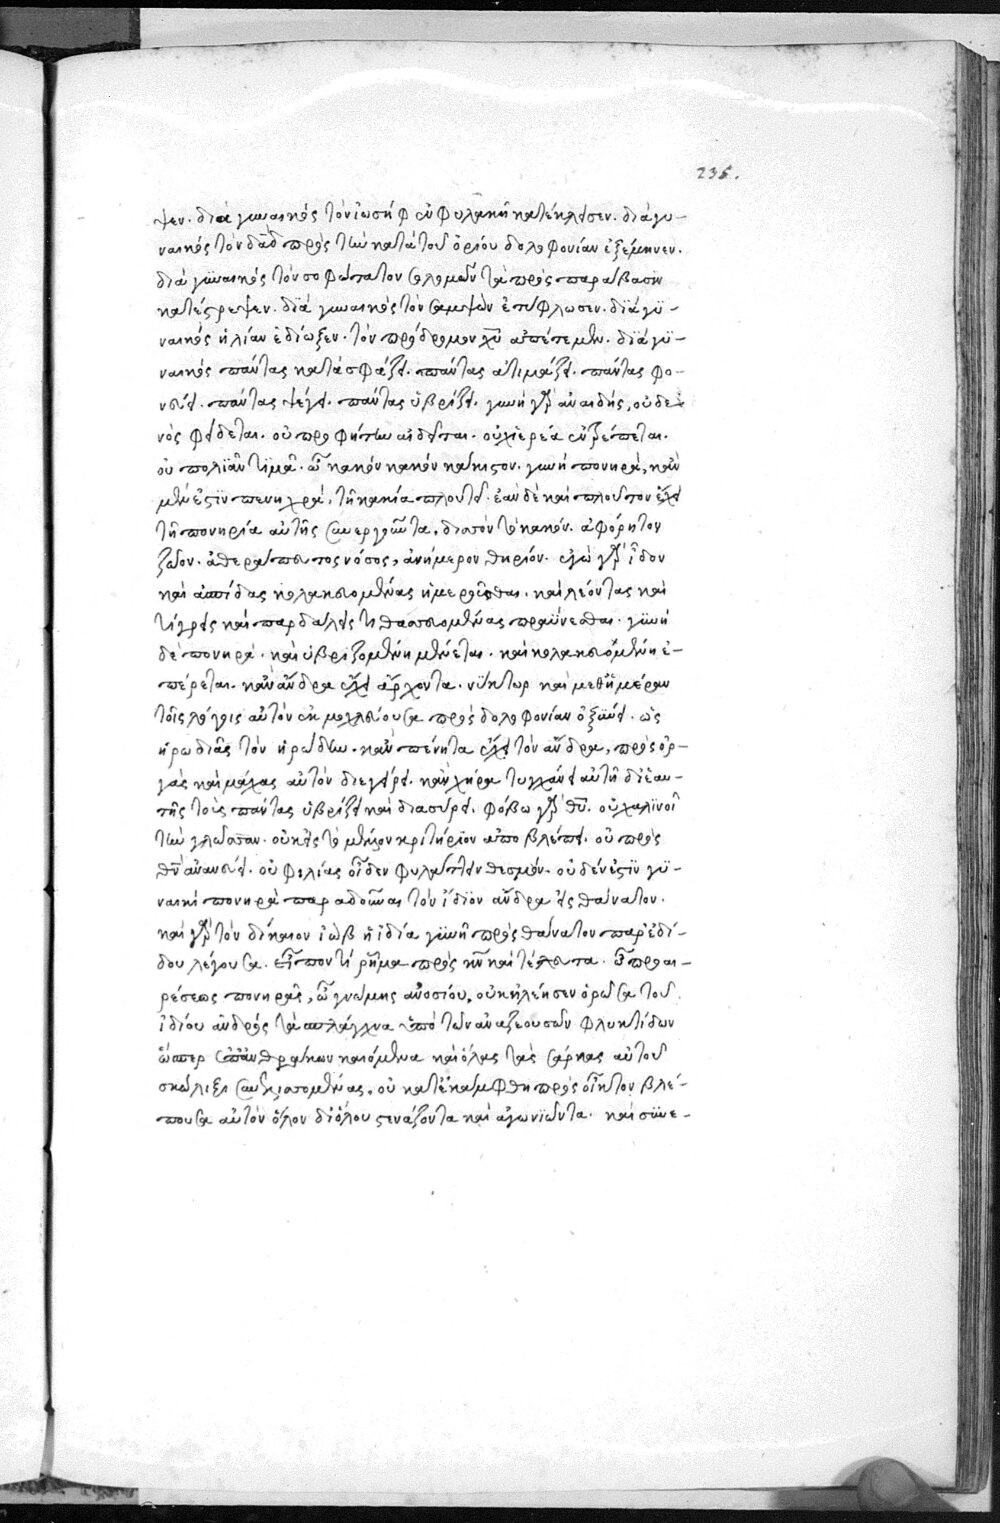 235.
ψεν. διὰ γυναικὸς τὸν ἰωσὴφ ἐν φυλακῇ κατέκλεισεν. διὰ γυ-
ναικὸς τὸν δᾱδ πρὸς τὴν κατὰ τοῦ ὀρίου δολοφονίαν ἐξέμηνεν.
διὰ γϋναικὸς τὸν σοφώτατον σολομῶντα πρὸς παράβασιν
κατέστρεψεν. δϊὰ γυναικὸς τὸν σαμψὼν ἐτύφλωσεν. δϊὰ γϋ-
ναικὸς ἠλίαν ἐδίωξεν. τὸν πρόδρομον χῡ ἀπέτεμεν. δϊὰ γϋ-
ναικὸς πάντας κατασφάζει. πάντας ἀτιμάζει. πάντας φο-
νεύει. πάντας ψέγει. πάντας ὑβρίζει. γυνὴ γὰρ ἀναιδὴς, οὐδε
νὸς φείδεται. οὐ προφήτην αἰδεῖται. οὐχ ἱερέα ἐντρέπεται.
οὐ πολιὰν τϊμᾶ. ὢ κακὸν κακοῦ κάκιστον. γυνὴ πονηρὰ, κἂν
μὲν ἐστϊν πενηχρὰ, τῇ κακία πλουτεῖ. ἐὰν δὲ καὶ πλοῦτον ἔχει
τῇ πονηρία αὐτῆς συνεργοῦντα, δισσὸν τὸ κακόν. ἀφόρητον
ζῶον. ἀθεράπευτος νόσος, ἀνήμερον θηρίον. ἐγὼ γὰρ ἶδον
καὶ ἀσπίδας κολακευομένας ἡμεροῦσθαι. καὶ λέοντας καὶ
τίγρεις καὶ παρδάλεις τιθασσευομένας πραΰνεσθαι. γϋνὴ
δὲ πονηρὰ. καὶ ὑβριζομένη μαίνεται. καὶ κολακευομένη ἐ-
πέρεται. κἂν ἄνδρα ἔχει ἄρχοντα. νΰκτωρ καὶ μεθἡμέραν
τοῖς λόγοις αὐτὸν ἐκμοχλεύουσα πρὸς δολοφονίαν ὀξΰνει. ὡς
ἡρωδιὰς τὸν ἡρώδην. κἂν πένητα ἔχει τὸν ἄνδρα, πρὸς ὀρ-
γὰς καὶ μάχας αὐτὸν διεγείρει. κἂν χήρα τυγχάνει αὐτὴ διἑαυ-
τῆς τοὺς πάντας ὑβρίζει καὶ διασύρει. φόβω γὰρ θῡ. οὐ χαλϊνοῖ
τὴν γλῶσσαν. οὐκ εἰς τὸ μέλλον κριτήριον ἀποβλέπει. οὐ πρὸς
θν̄ ἀνανεύει. οὐ φιλίας οἶδεν φυλάττειν θεσμόν. οὐδέν ἐστϊν γϋ-
ναικὶ πονηρὰ παραδοῦναι τὸν ἴδϊον ἄνδρα εἰς θάνατον.
καὶ γὰρ τὸν δίκαιον ἰὼβ ἡ ἰδία γϋνὴ πρὸς θάνατον παρεδί-
δου λέγουσα. εἶπόν τί ῥῆμα πρὸς κν̄ καὶ τελεύτα. ὢ προαι-
ρέσεως πονηρᾶς, ὢ γνώμης ἀνοσίου, οὐκ ἠλέησεν ὁρῶσα τοῦ
ἰδίου ἀνδρὸς τὰ σπλάγχνα ὑπὸ τῶν ἀναζεουσῶν φλυκτίδων
ὥσπερ ὑπἀνθράκων καιόμενα καὶ ὅλας τὰς σάρκας αὐτοῦ
σκώληξι συγκλωσμένας, οὐ κατεκάμφθη πρὸς οἶκτον βλέ-
πουσα αὐτὸν ὅλον διὅλου στενάζοντα καὶ ἀγωνϊῶντα. καὶ σϋνε-